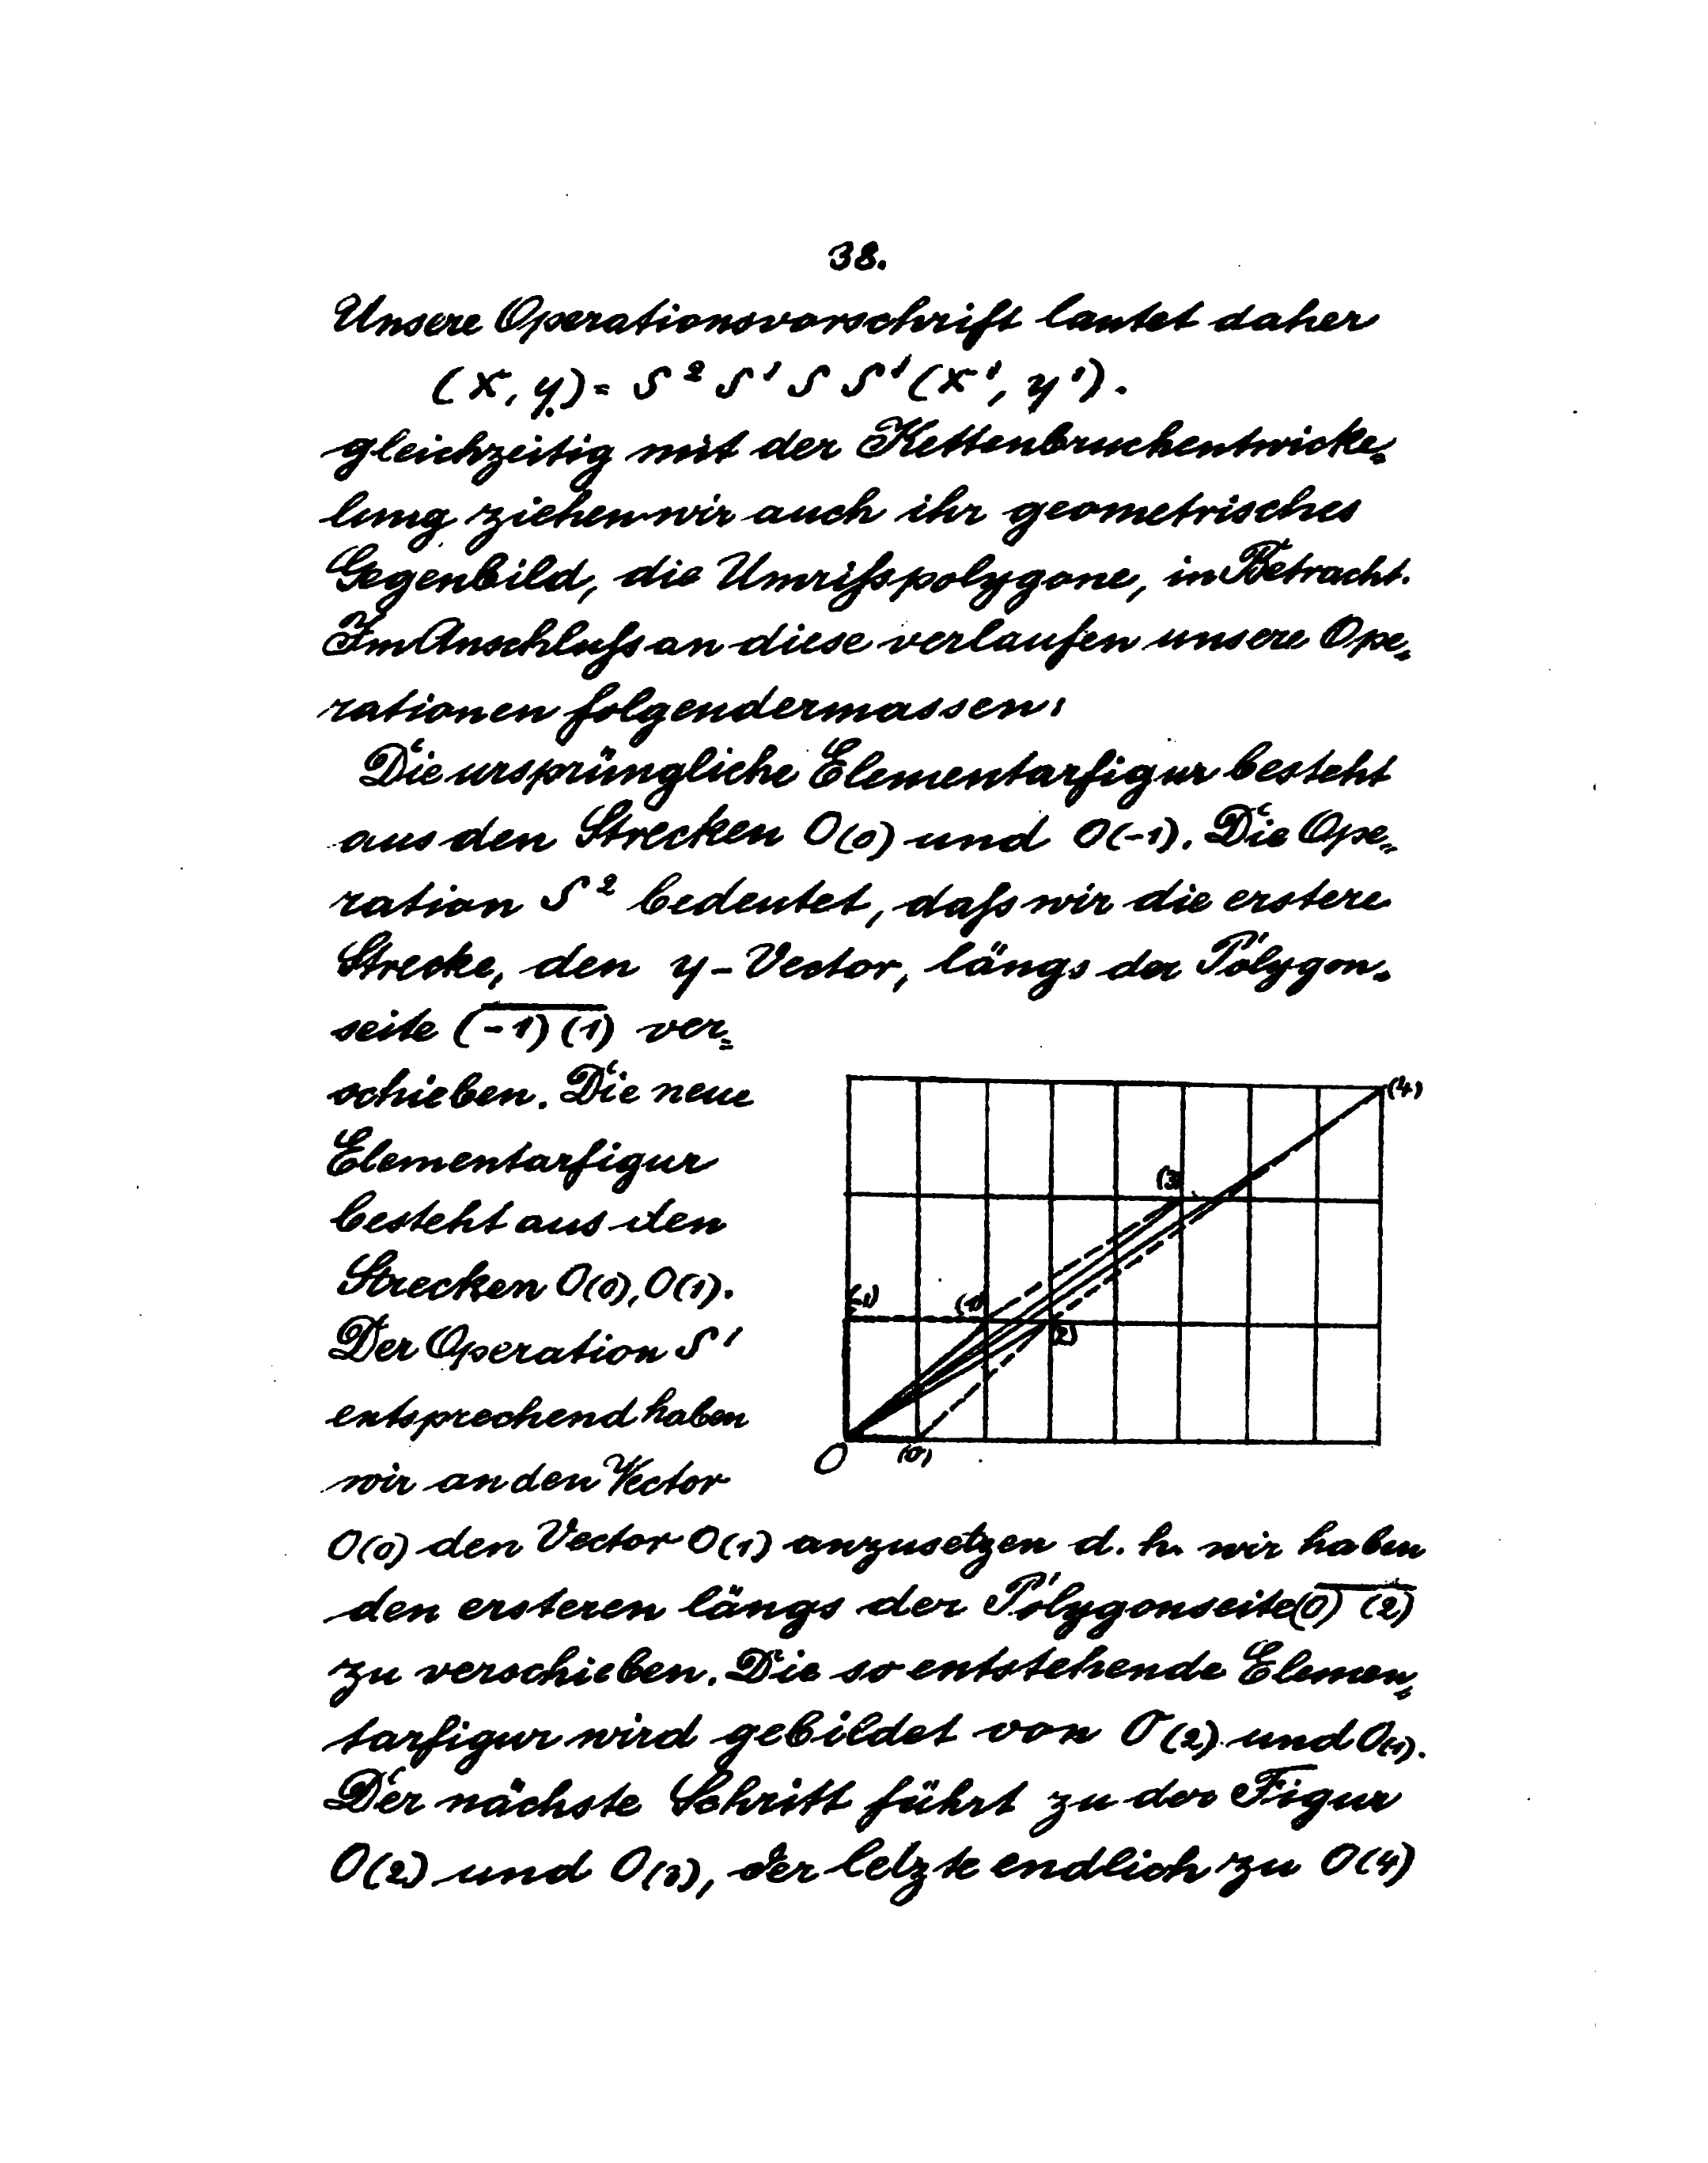 38.
Unsere Operationsvorschrift lautet daher
(x, y) = S² S' S S' (x', y').
gleichzeitig mit der Kettenbruchentwicke-
lung ziehen wir auch ihr geometrisches
Gegenbild, die Umrißpolygone, in Betracht.
Im Anschluß an diese verlaufen unsere Ope-
rationen folgendermassen:
Die ursprüngliche Elementarfigur besteht
aus den Strecken O(0) und O(-1). Die Ope-
ration S² bedeutet, daß wir die erstere
Strecke, den y-Vector, längs der Polygon-
seite (‾-1) (1)‾ ver-
schieben. Die neue
Elementarfigur
besteht aus den
Strecken O(0), O(1).
Der Operation S'
entsprechend haben
wir an den Vector
(4)
(3)
(-1)
(1)
(2)
O
(0)
O(0) den Vector O(1) anzusetzen d. h. wir haben
den ersteren längs der Polygonseite (0) (2)
zu verschieben. Die so entstehende Elemen-
tarfigur wird gebildet von O(2) und O(1).
Der nächste Schritt führt zu der Figur
O(2) und O(3), der letzte endlich zu O(4)